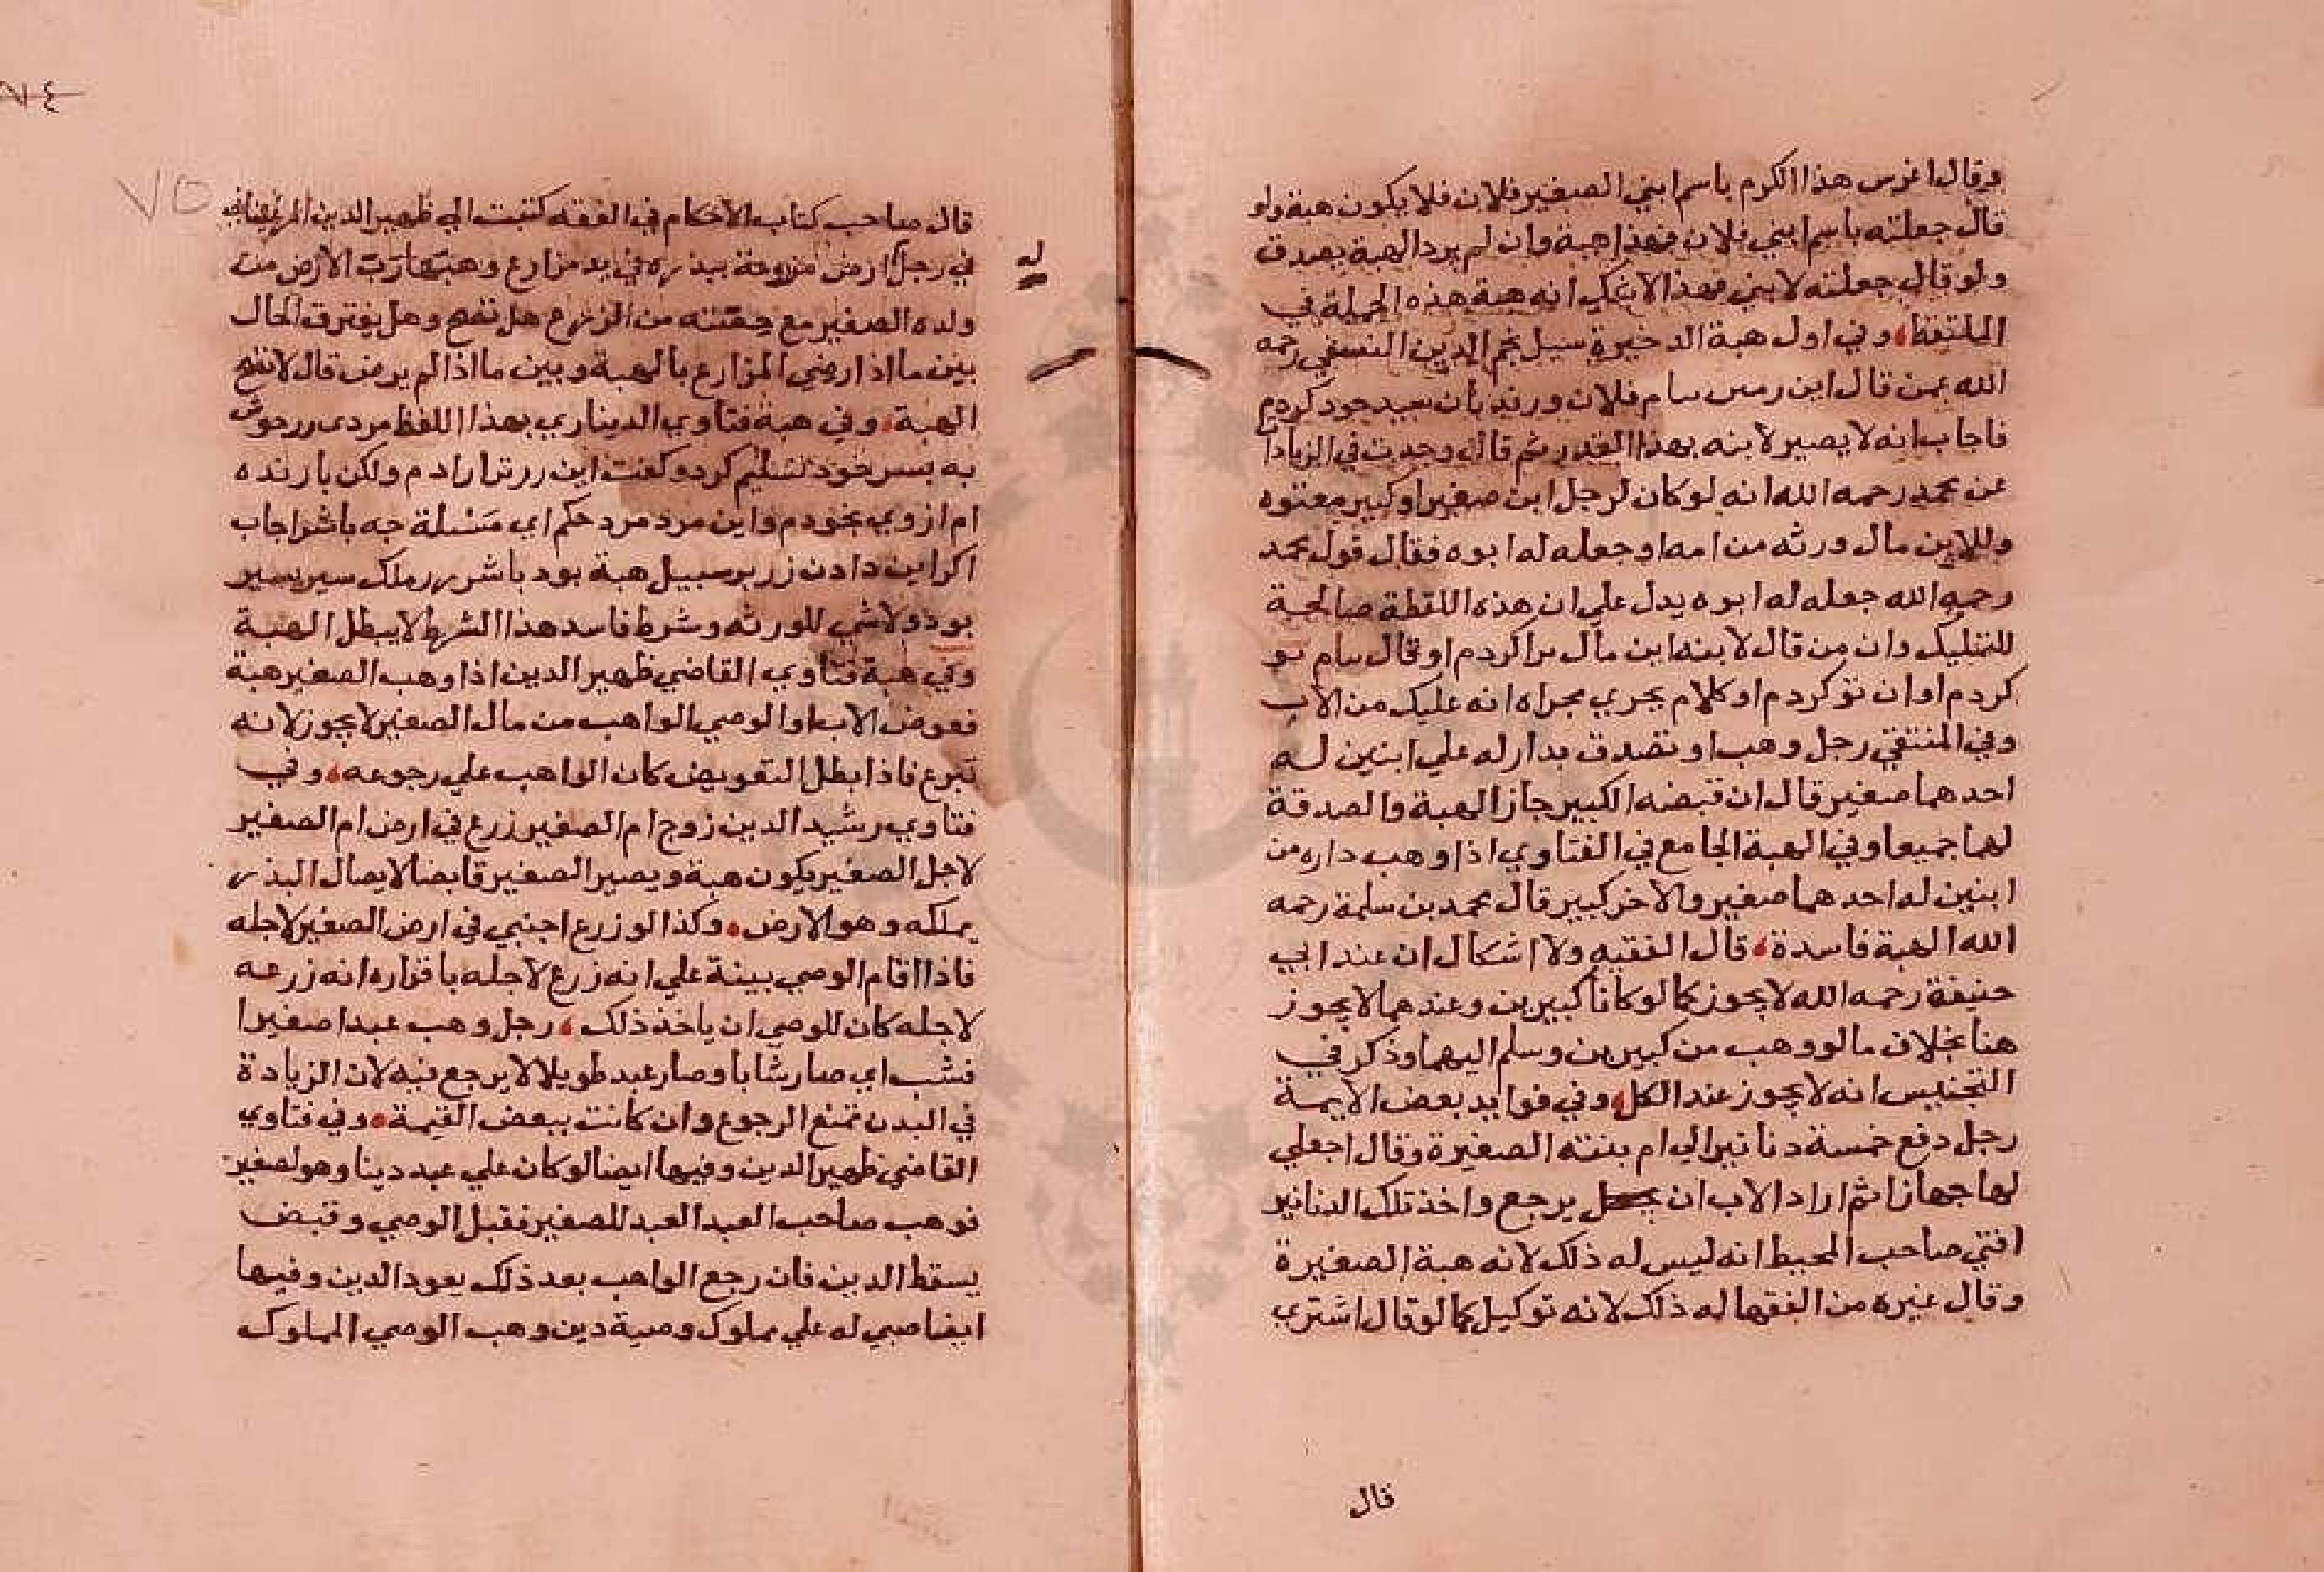 وقال اغرس هذا الكرم باسم ابني الصغير فلان فلا يكون هبة ولو
قال جعلته باسم ابني فلان فهذا هبة وان لم يرد الهبة يصدق
ولو قال جعلته لابني فهذا لا انه هبة هذه الجملة في
الملتقط وفي اول هبة الدخيرة سيل نجم الدين النسفي رحمه
الله عمن قال اين بنام فلان كردم
فاجاب انه لا يصير لابنه بهذا القدر ثم قال وجدت في الزيادا
عن محمد رحمه الله انه لو كان لرجل ابن صغير او كبير معتوه
وللابن مال ورثه من امه او جعله له ابوه فقال قول محمد
رحمه الله جعله له ابوه يدل علي ان هذه اللفظة صالحة
للتمليك وان من قال لابنه اين مال ترا كردم او قال بنام تو
كردم او ان تو كردم او كلام يجري مجراه انه عليك من الاب
وفي المنتقي رجل وهب او تصدق بدار له علي ابنين له
احدهما صغير قال ان قبضه الكبير جاز الهبة والصدقة
لهما جميعا وفي الهبة الجامع في الفتاوي اذا وهب داره من
ابنين له احدهما صغير والاخر كبير قال محمد بن سلمة رحمه
الله الهبة فاسدة قال الفقيه ولا اشكال ان عند ابي
حنيفة رحمه الله لا يجوز كما لو كانا كبيرين وعندهما لا يجوز
هنا بخلاف ما لو وهب من كبيرين وسلم اليهما وذكر في
التجنيس انه لا يجوز عند الكل وفي فوايد بعض الايمة
رجل دفع خمسة دنانير الي ام بنته الصغيرة وقال اجعلي
لها جهازا ثم اراد الاب ان يرجع واخذ تلك الدنانير
افتي صاحب المحيط انه ليس له ذلك لانه هبة الصغيرة
وقال غيره من الفقها له ذلك لانه توكيل كما لو قال اشتري
قال
٧٤
٧٥
قال صاحب كتاب الاحكام في الفقه كتبت الي ظهير الدين المرغيناني
في رجل ارض مزروعة ببذره في يد مزارع وهبها رب الارض من
له
ولده الصغير مع حصته من الزرع هل تصح وهل يفترق الحال
بين ما اذا رضي المزارع بالهبة وبين ما اذا لم يرض قال لا تصح
الهبة وفي هبة فتاوي الديناري بهذا اللفظ مردي
به بسر خود تسليم كرد وكفت اين زر ترا دادم ولكن باز نده
ام از وي بخودم واين مرد مرد حكم اي مسئلة جه باشد اجاب
اكر اين دادن زر بر سبيل هبة بود باشد
بود ولا شي للورثه وشرط فاسد هذا الشرط لا يبطل الهبة
وفي هبة فتاوي القاضي ظهير الدين اذا وهب الصغير هبة
فعوض الاب او الوصي الواهب من مال الصغير لا يجوز لانه
تبرع فاذا بطل التعويض كان الواهب علي رجوعه وفي
فتاوي رشيد الدين زوج ام الصغير زرع في ارض ام الصغير
لاجل الصغير يكون هبة ويصير الصغير قابضا لايصال البذر
بملكه وهو الارض وكذا لو زرع اجنبي في ارض الصغير لاجله
فاذا اقام الوصي بينة علي انه زرع لاجله باقراره انه زرعه
لاجله كان للوصي ان ياخذ ذلك رجل وهب عبدا صغيرا
فشب اي صار شابا وصار عبد طويلا لا يرجع فيه لان الزيادة
في البدن تمنع الرجوع وان كانت ببعض القيمة وفي فتاوي
القاضي ظهير الدين وفيها ايضا لو كان علي عبد دينا وهو لصغير
فوهب صاحب العبد العبد للصغير فقبل الوصي وقبض
يسقط الدين فان رجع الواهب بعد ذلك يعود الدين وفيها
ايضا صبي له علي مملوك وصية دين وهب الوصي المملوك